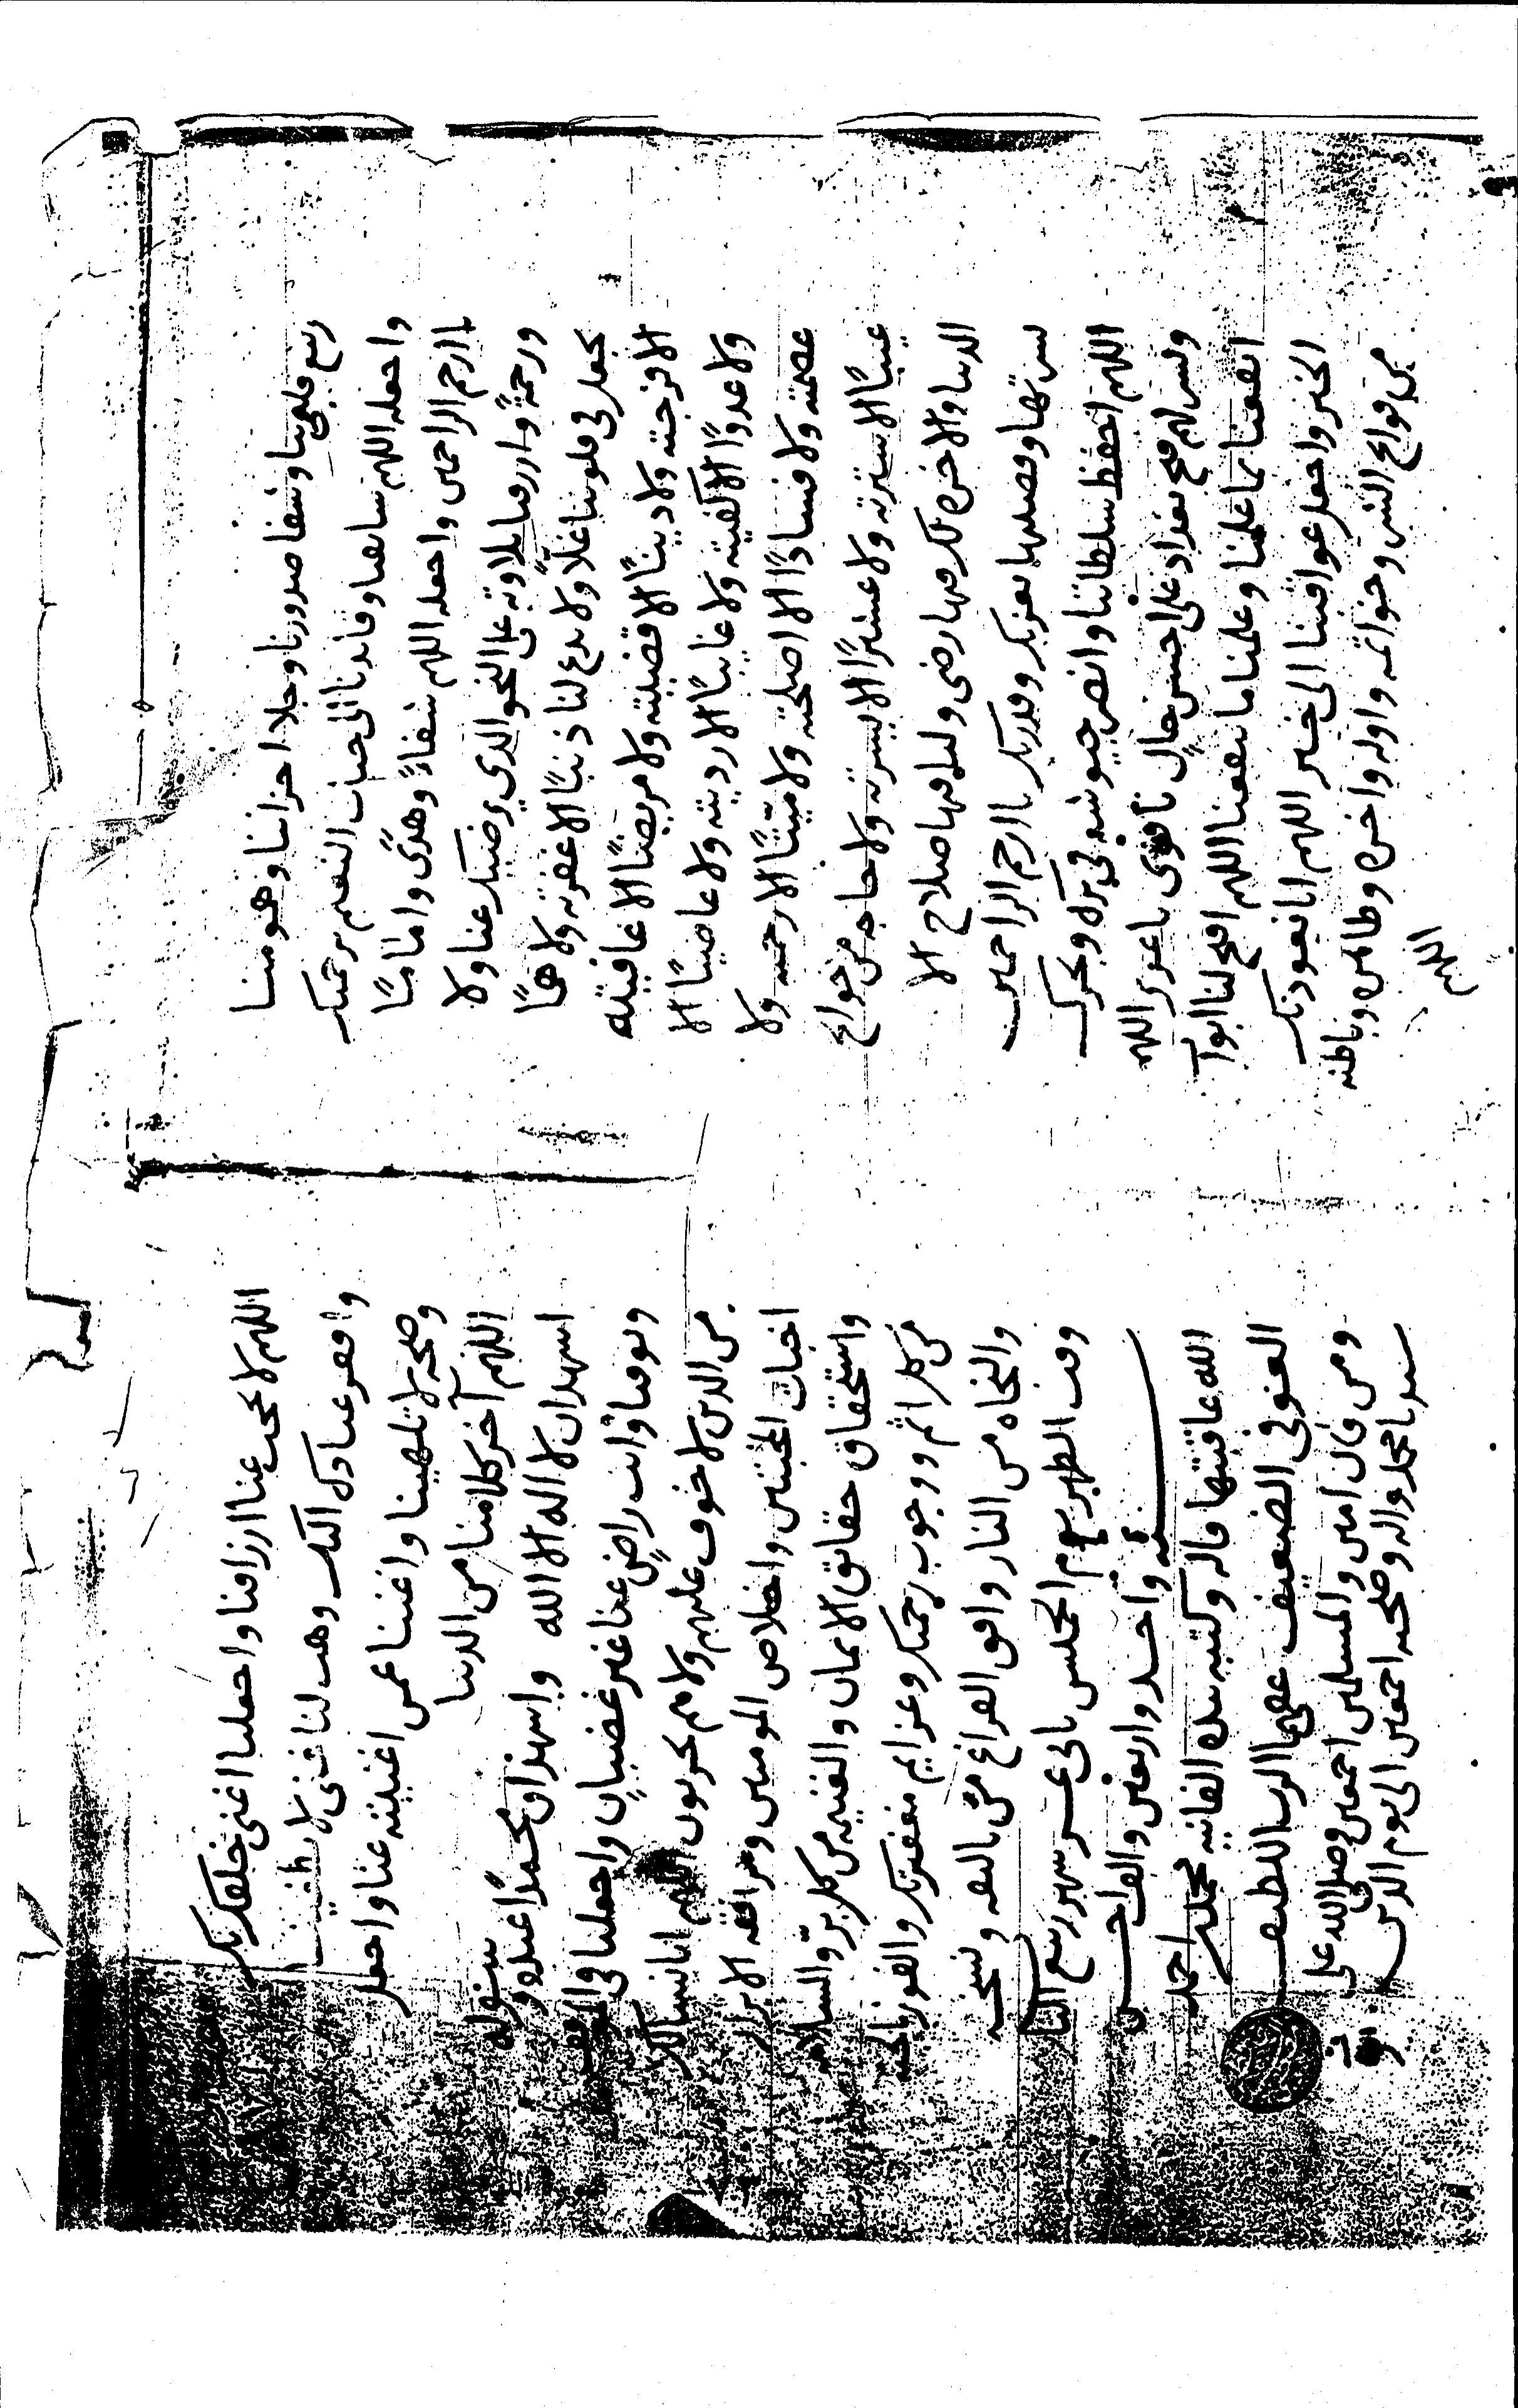 ربيع قلوبنا وشفا صدورنا وجلا احزاننا وهمومنا
واجعله اللهم سابقنا وقائدنا الى جنات النعيم برحمتك
يا ارحم الراحمين واجعله اللهم شفاءً وهدًى وامامًا
ورحمةً وارزقنا تلاوته على النحو الذي يرضيك عنا ولا
تجعل في قلوبنا غلًا ولا تدع لنا ذنبًا الا غفرته ولا همًا
الا فرجته ولا دينًا الا قضيته ولا مريضًا الا عافيته
ولا عدوًا الا كفيته ولا غايبًا الا رديته ولا عاصيًا الا
عصمته ولا فسادًا الا اصلحته ولا ميّتًا الا رحمته ولا
عيبًا الا سترته ولا عسرًا الا يسرته ولا حاجه من حوائج
الدنيا والاخره لك فيها رضى ولنا فيها صلاح الا
يسرتها وقضيتها بعزتك وقدرتك يا ارحم الراحمين
اللهم احفظ سلطاننا وانصر جيوشه في برك وبحرك
ويسر لهم فتح بغداد على احسن حال يا قوى يا عزيز اللهم
انفعنا بما علمتنا وعلمنا ما ينفعنا اللهم افتح لنا ابواب
الخير واجعل عواقبنا الى خير اللهم انا نعوذ بك
من فواتح الشر وخواتمه واوله واخره وظاهره وباطنه
اللهم
اللهم لا تحجب عنا ارزاقنا واجعلنا اغنى خلقك بك
وافقر عبادك اليك وهب لنا غنى لا يطغينا
وصحه لا تلهينا واغننا عمن اغنيته عنا واجعل
اللهم آخر كلامنا من الدنيا
اشهد ان لا اله الا الله واشهد ان محمدًا عبده ورسوله
وتوفنا وانت راضٍ عنا غير غضبان واجعلنا في الموقف
من الذين لا خوف عليهم ولا هم يحزنون اللهم انا نسالك
اخبات المخبتين واخلاص المومنين ومرافقه الابرار
واستحقاق حقائق الايمان والغنيمه من كل برّ والسلامه
من كل اثم ووجوب رحمتك وعزايم مغفرتك والفوز بالجنه
والنجاه من النار وافق الفراغ من
وقت الظهر يوم الخميس ثاني عشر شهر ربيع الثاني
سنه واحد واربعين والف احسن
الله عاقبتها قاله وكتبه بيده الفانيه محمد احمد
العوفى الضعيف الرب اللطيف
ومن قال امين والمسلمين اجمعين وصلى الله على
سيدنا محمد واله وصحبه اجمعين الى يوم الدين